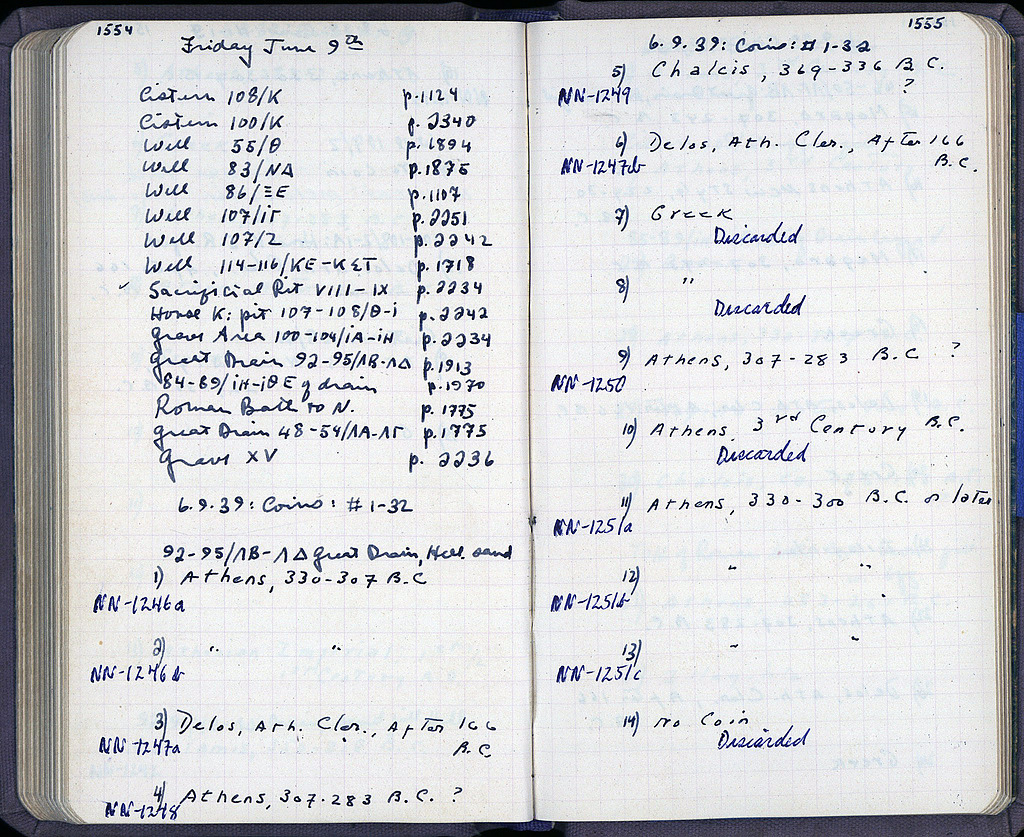 1554
Friday June 9th
Cistern 108/K p.1124
Cistern 100/K p.2340
Well 55/Θ p.1894
Well 83/ΝΔ p.1875
Well 86/ΞΕ p.1107
Well 107/ΙΓ p.2251
Well 107/Ζ p.2242
Well 114-116/ΚΕ-ΚΣΤ p.1718
✓ Sacrificial Pit VIII-IX p.2234
House K: pit 107-108/Θ-Ι p.2242
Grave Area 100-104/ΙΑ-ΙΗ p.2234
Great Drain 92-95/ΛΒ-ΛΔ p.1913
84-89/ΙΗ-ΙΘ E of drain p.1970
Roman Bath to N. p.1775
Great Drain 48-54/ΛΑ-ΛΓ p.1775
Grave XV p.2236
6.9.39: Coins: #1-32
92-95/ΛΒ-ΛΔ Great Drain, Hell sand
1) Athens, 330-307 B.C
ΝΝ-1246a
2) " "
ΝΝ-1246b
3) Delos, Ath. Cler., After 166
ΝΝ-1247a B.C
4) Athens, 307-283 B.C. ?
ΝΝ-1248
1555
6.9.39: Coins: #1-32
5) Chalcis, 369-336 B.C.
ΝΝ-1249 ?
6) Delos, Ath. Cler., After 166
ΝΝ-1247b B.C.
7) Greek
Discarded
8) "
Discarded
9) Athens, 307-283 B.C ?
ΝΝ-1250
10) Athens, 3rd Century B.C.
Discarded
11) Athens, 330-300 B.C. or later
ΝΝ-1251a
12) " "
ΝΝ-1251b
13) " "
ΝΝ-1251c
14) No Coin
Discarded